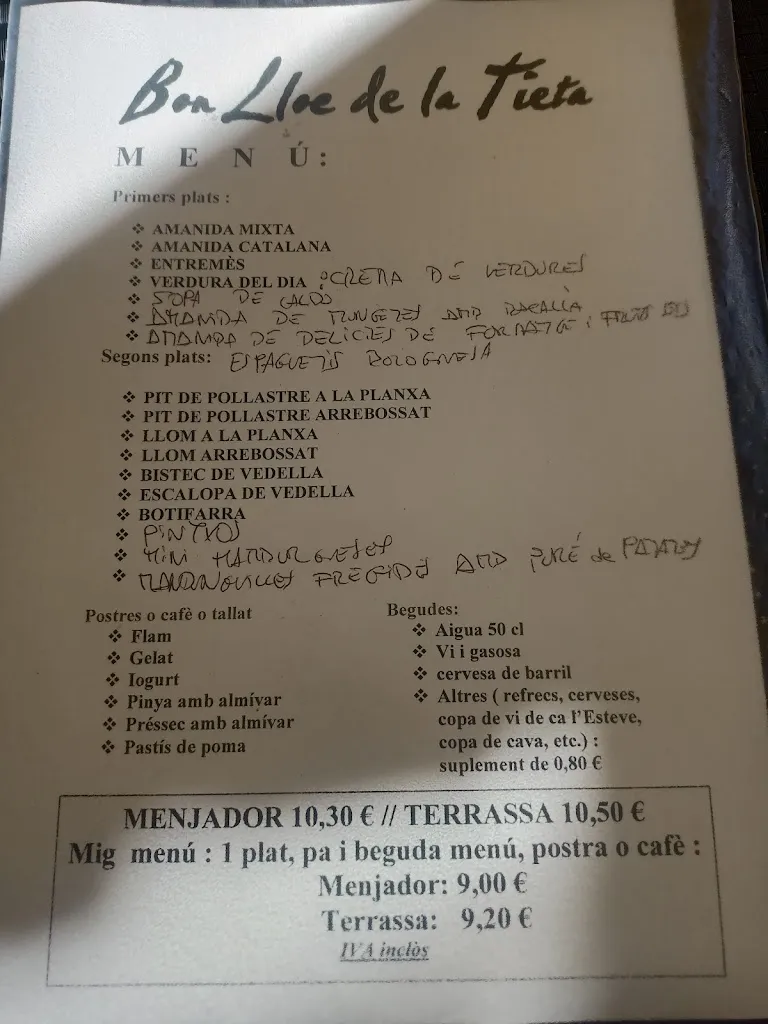 Bon Lloc de la Tieta
MENÚ:
Primers plats :
❖ AMANIDA MIXTA
❖ AMANIDA CATALANA
❖ ENTREMÈS
❖ VERDURA DEL DIA : CREMA DE VERDURES
❖ SOPA DE CALDO
❖ AMANIDA DE MONGETES AMB BACALLÀ
❖ AMANIDA DE DELICIES DE FORMATGE i FRUITS
Segons plats: ESPAGUETIS BOLOGNESA
❖ PIT DE POLLASTRE A LA PLANXA
❖ PIT DE POLLASTRE ARREBOSSAT
❖ LLOM A LA PLANXA
❖ LLOM ARREBOSSAT
❖ BISTEC DE VEDELLA
❖ ESCALOPA DE VEDELLA
❖ BOTIFARRA
❖ PINTXOS
❖ MINI HAMBURGUESES
❖ FREGIDES AMB PURÉ de PATATES
Postres o cafè o tallat
❖ Flam
❖ Gelat
❖ Iogurt
❖ Pinya amb almívar
❖ Préssec amb almívar
❖ Pastís de poma
Begudes:
❖ Aigua 50 cl
❖ Vi i gasosa
❖ cervesa de barril
❖ Altres ( refrecs, cerveses,
copa de vi de ca l'Esteve,
copa de cava, etc.) :
suplement de 0,80 €
MENJADOR 10,30 € // TERRASSA 10,50 €
Mig menú : 1 plat, pa i beguda menú, postra o cafè :
Menjador: 9,00 €
Terrassa: 9,20 €
IVA inclòs